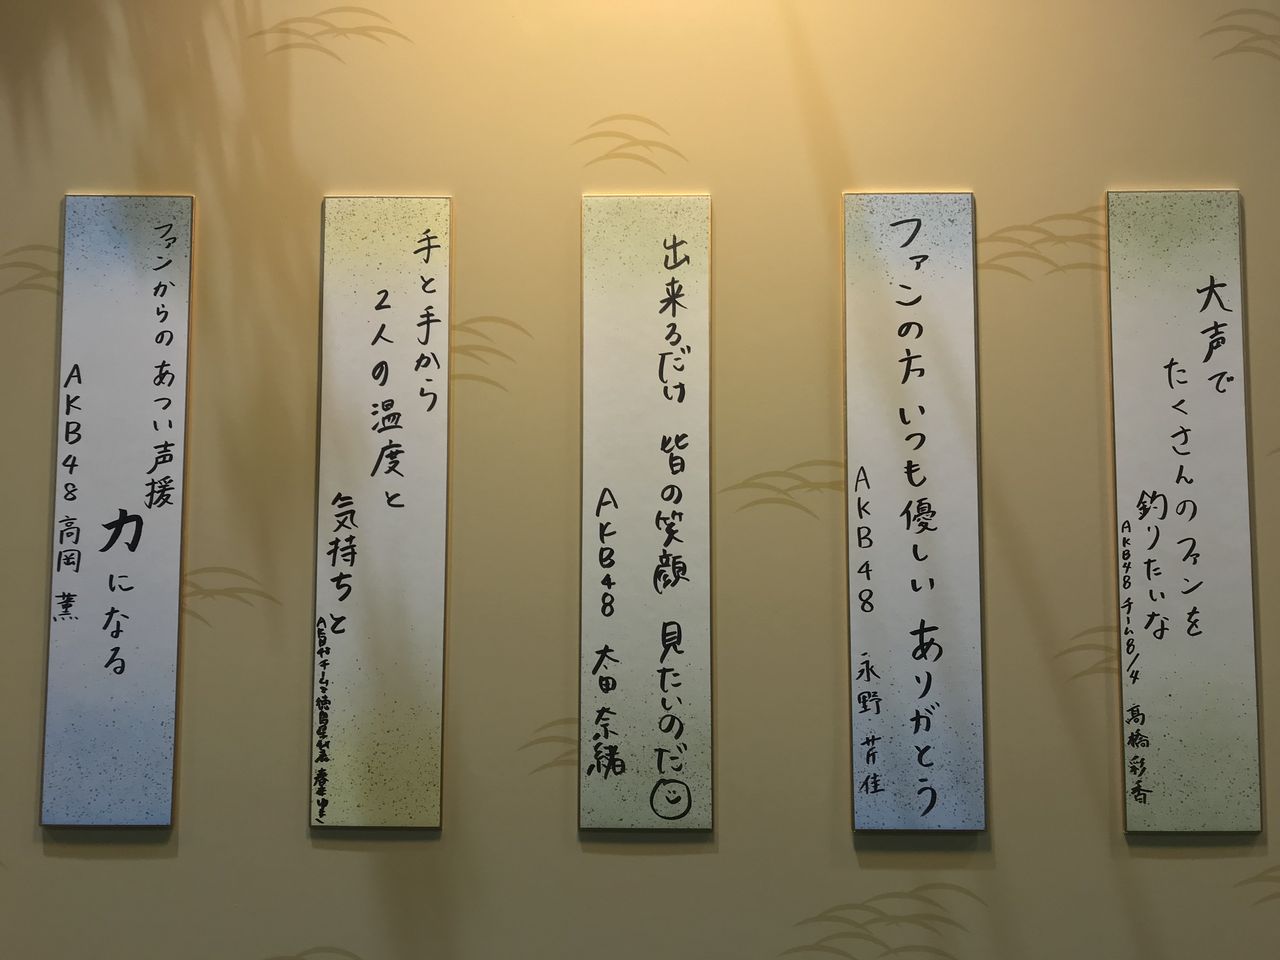 大声で
たくさんのファンを
釣りたいな
AKB48 チーム8/4 髙橋彩香
ファンの方 いつも優しい ありがとう
AKB48 永野 芹佳
出来るだけ 皆の笑顔 見たいのだ
AKB48 太田 奈緒
手と手から
2人の温度と
気持ちと
AKB48 チーム8 徳島県代表 春本ゆき
ファンからの あつい声援
力になる
AKB48 高岡 薫